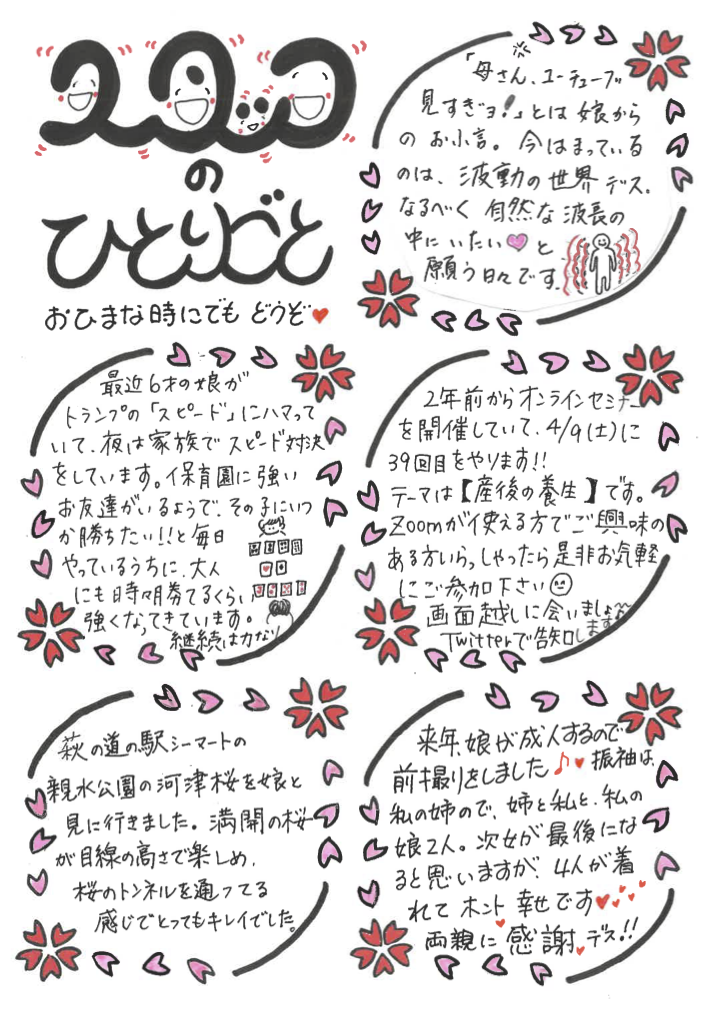 のひとりごと
おひまな時にでも どうぞ♥
「母さん、ユーチューブ
見すぎョ!」とは娘から
の お小言。今はまっている
のは、波動の世界デス。
なるべく 自然な波長の
中にいたい♥と
願う日々です。
最近6才の娘が
トランプの「スピード」にハマって
いて、夜は家族でスピード対決
をしています。保育園に強い
お友達がいるようで、その子にいつ
か勝ちたい!!と毎日
やっているうちに、大人
にも時々勝てるくらい
強くなってきています。
継続は力なり
2年前からオンラインセミナー
を開催していて、4/9(土)に
39回目をやります!!
テーマは【産後の養生】です。
Zoomが使える方でご興味の
ある方いらっしゃったら是非お気軽
にご参加下さい☺
画面越しに会いましょう
Twitterで告知します
萩の道の駅シーマートの
親水公園の河津桜を娘と
見に行きました。満開の桜
が目線の高さで楽しめ、
桜のトンネルを通ってる
感じでとってもキレイでした。
来年、娘が成人するので
前撮りをしました♪♥振袖は、
私の姉ので、姉と私と、私の
娘2人。次女が最後にな
ると思いますが、4人が着
れて ホント 幸せです♥
両親に感謝デス!!